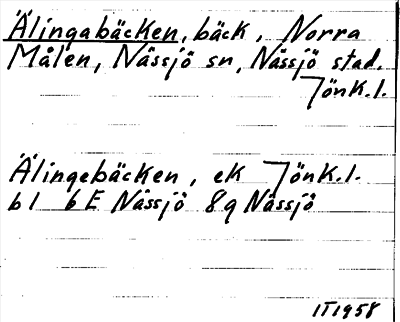 Älingabäcken, bäck, Norra
Målen, Nässjö sn, Nässjö stad.
Jönk.l.
Älingebäcken, ek Jönk.l.
bl 6E Nässjö 8g Nässjö
IT1958